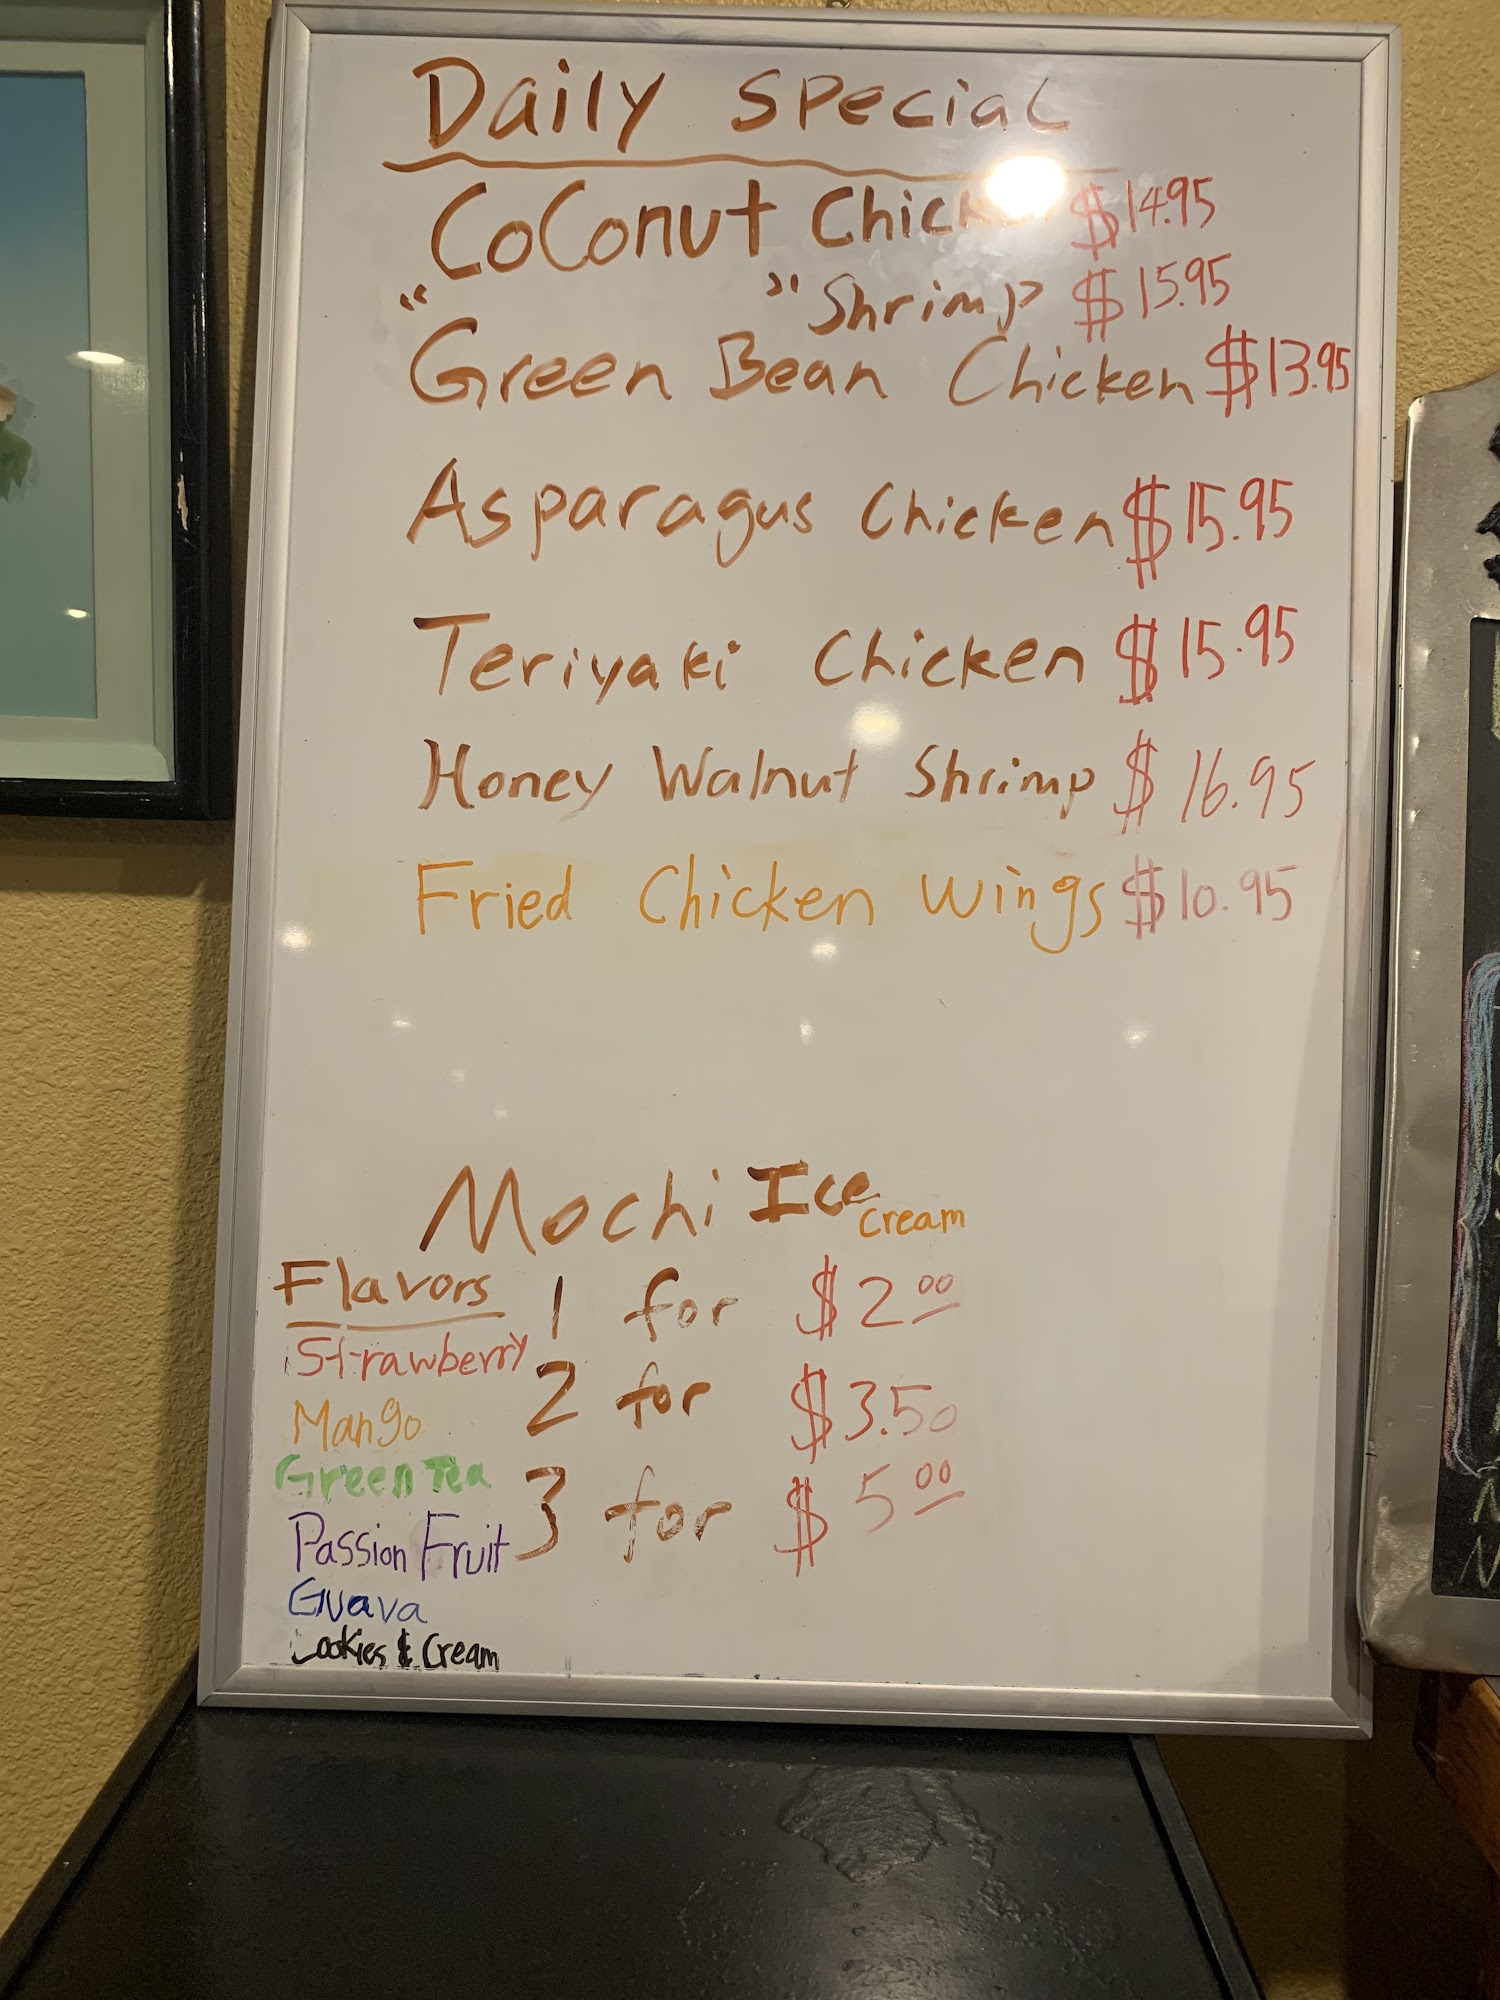 Daily Special
Coconut Chicken $14.95
" " Shrimp $15.95
Green Bean Chicken $13.95
Asparagus Chicken $15.95
Teriyaki Chicken $15.95
Honey Walnut Shrimp $16.95
Fried Chicken Wings $10.95
Mochi Ice Cream
Flavors
1 for $2.00
Strawberry
2 for $3.50
Mango
Green Tea
3 for $5.00
Passion Fruit
Guava
Cookies & Cream